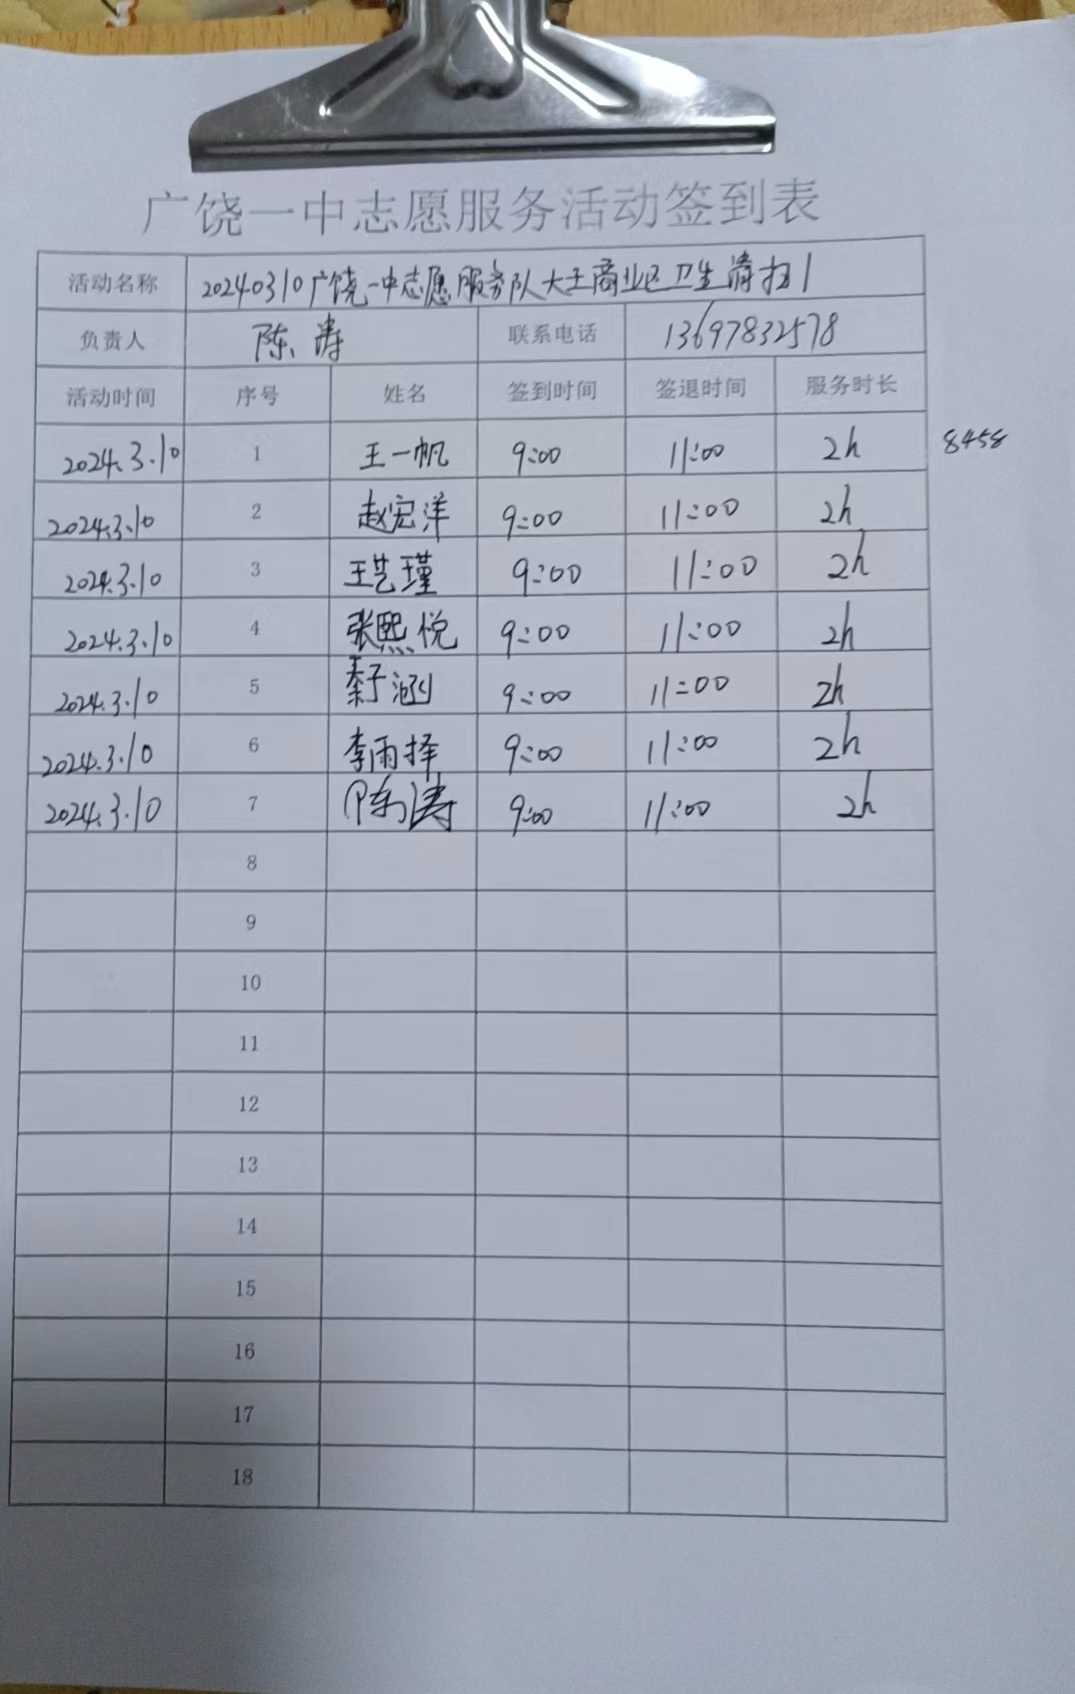 广饶一中志愿服务活动签到表
活动名称 20240310广饶一中志愿服务队大王商业区卫生清扫1
负责人 陈涛 联系电话 13697832578
活动时间 序号 姓名 签到时间 签退时间 服务时长
2024.3.10 1 王一帆 9:00 11:00 2h 8458
2024.3.10 2 赵宏洋 9:00 11:00 2h
2024.3.10 3 王艺瑾 9:00 11:00 2h
2024.3.10 4 张熙悦 9:00 11:00 2h
2024.3.10 5 綦子涵 9:00 11:00 2h
2024.3.10 6 李雨择 9:00 11:00 2h
2024.3.10 7 陈涛 9:00 11:00 2h
8
9
10
11
12
13
14
15
16
17
18